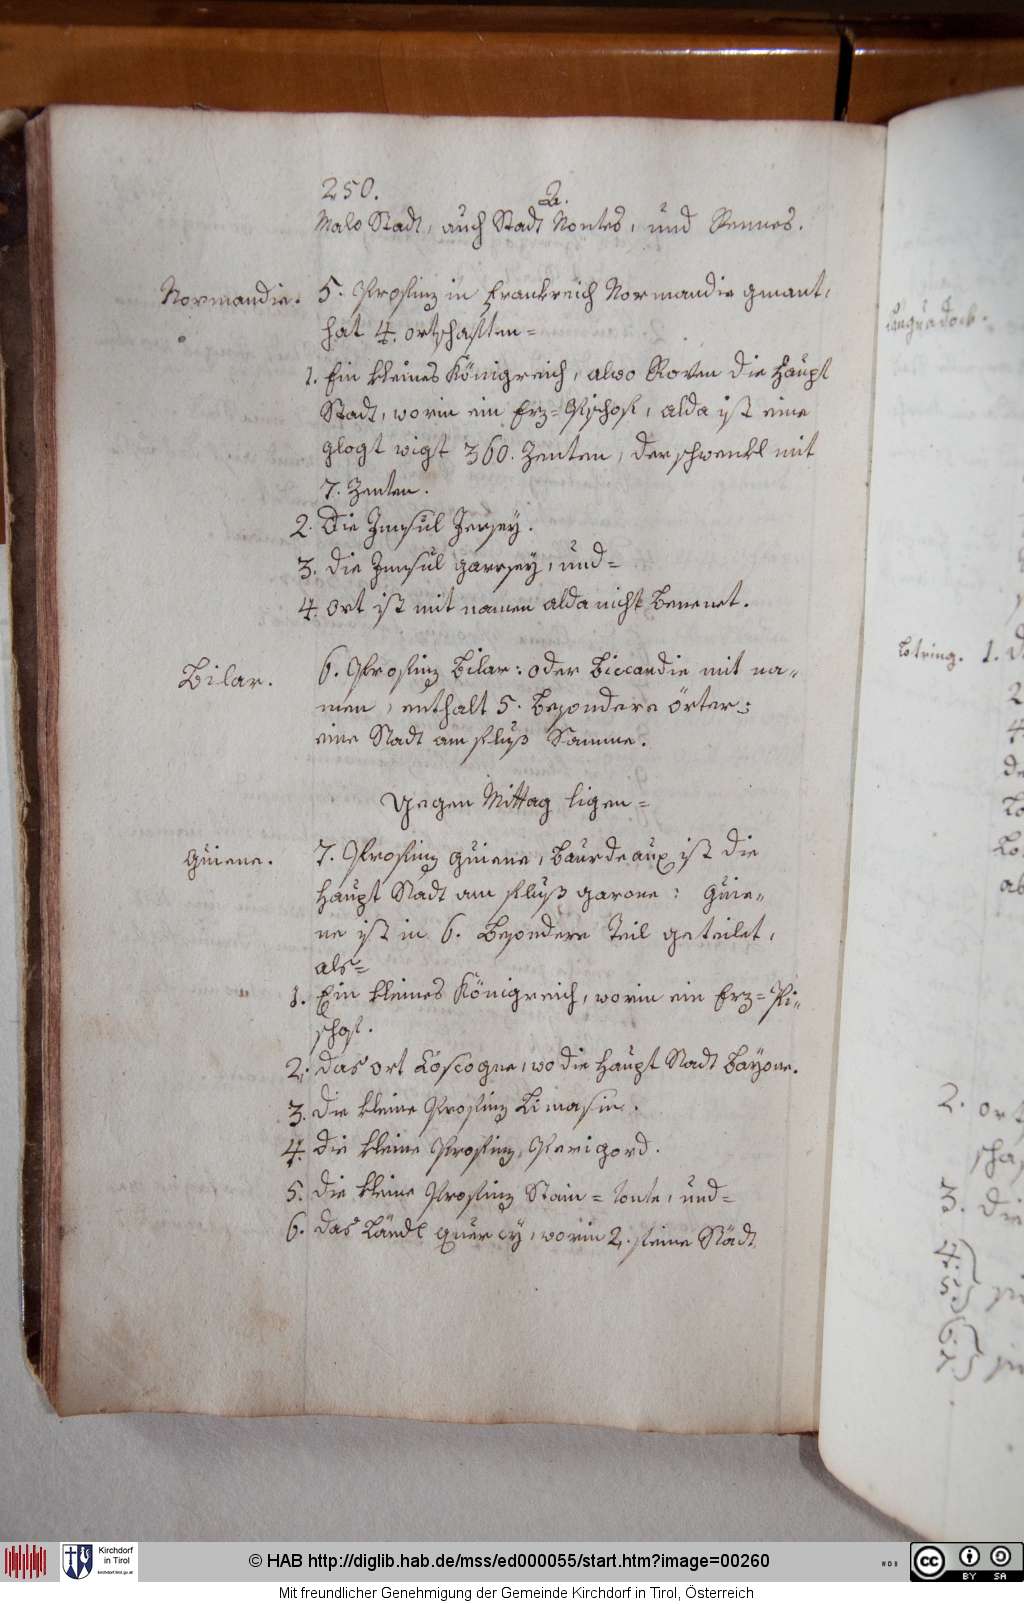 250.
2.
Malo Stadt, auch Stadt Nontes, und Rennes.
Normandie.
5. Profinz in Frankreich Normandie gnant,
hat 4. ortschaften=
1. Ein kleines Königreich, alwo Roven die Haupt
Stadt, worin ein Erz=Pischof, alda ist eine
glogt wigt 360. Zenten, der schwenkl mit
7. Zenten.
2. Die Jnnsul Jersey.
3. die Jnnsul garnsey, und=
4. ort ist mit namen alda nicht Benenet.
Bilar.
6. Profinz Bilar: oder Biccardie mit na=
men, enthalt 5. Besondere örter:
eine Stadt am fluß Somme.
Gegen Mittag ligen=
Guiene.
7. Profinz Guiene, Baurdeaux ist die
Haupt Stadt am fluß garone: Guie=
ne ist in 6. Besondere Teil geteilet,
als=
1. Ein kleines Königreich, worin ein Erz=Pi=
schof.
2. das ort Coscogne, wo die Haupt Stadt Bayone.
3. die kleine Profinz Limasin.
4. die kleine Profinz Perigord.
5. die kleine Profinz Stain=tonte, und=
6. das Ländl quercy, worin 2. feine Städt
Languadock.
Lotring. 1.
2
4
de
Lo
ab
2. ort
scha
3. Die
4.
5.
6.
7.
Kirchdorf
in Tirol
kirchdorf.tirol.gv.at
© HAB http://diglib.hab.de/mss/ed000055/start.htm?image=00260
WDB
CC BY SA
Mit freundlicher Genehmigung der Gemeinde Kirchdorf in Tirol, Österreich